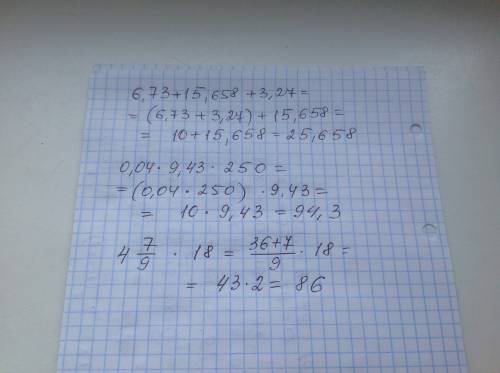 6,73+15,658+3,27=
= (6,73+3,27)+15,658=
= 10+15,658=25,658
0,04·9,43·250=
=(0,04·250)·9,43=
= 10·9,43=94,3
4 7/9 · 18 = (36+7)/9 · 18=
= 43·2= 86